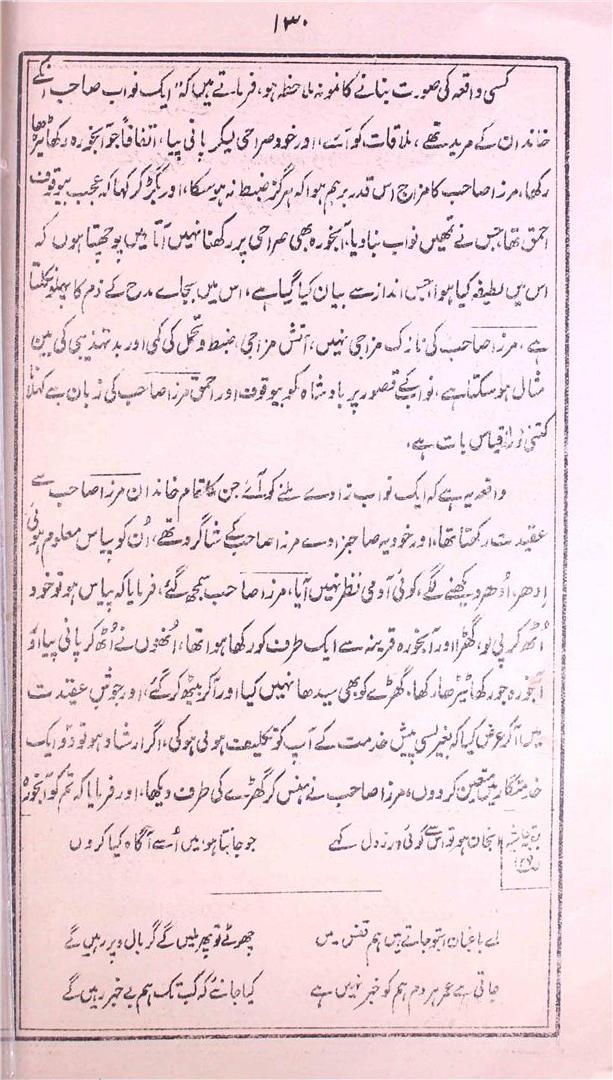 ۱۳۰
کسی واقعہ کی صورت بنانے کا نمونہ ملاحظہ ہو، فرماتے ہیں کہ "ایک نواب صاحب انکے
خاندان کے مرید تھے، ملاقات کو آئے، اور خود صراحی لیکر پانی پیا، اتفاقاً جو آبخورہ رکھا ٹیڑھا
رکھا، مرزا صاحب کا مزاج اس قدر برہم ہوا کہ ہرگز ضبط نہ ہو سکا، اور بگڑ کر کہا کہ عجب بیوقوف
احمق تھا، جس نے تمھیں نواب بنا دیا، آبخورہ بھی صراحی پر رکھنا نہیں آتا میں پوچھتا ہوں کہ
اس میں لطیفہ کیا ہوا، جس انداز سے بیان کیا گیا ہے، اس میں بجاے مدح کے ذم کا پہلو نکلتا
ہے، مرزا صاحب کی نازک مزاجی نہیں، آتش مزاجی، ضبط و تحمل کی کمی اور بد تہذیبی کی بین
مثال ہو سکتا ہے، نواب کے قصور پر بادشاہ کو بیوقوف اور احمق مرزا صاحب کی زبان سے کہلانا
کتنی دور از قیاس بات ہے،
واقعہ یہ ہے کہ ایک نواب زادے ملنے کو آئے جن کا تمام خاندان مرزا صاحب سے
عقیدت رکھتا تھا، اور خود یہ صاحبزادے مرزا صاحب کے شاگرد تھے، اُن کو پیاس معلوم ہوئی
اِدھر، اُدھر دیکھنے لگے، کوئی آدمی نظر نہیں آیا، مرزا صاحب سمجھ گئے، فرمایا کہ پیاس ہو تو خود
اُٹھ کر پی لو، گھڑا اور آبخورہ قرینہ سے ایک طرف کو رکھا ہوا تھا، اُنھوں نے اُٹھ کر پانی پیا، اور
آبخورہ جو رکھا ٹیڑھا رکھا، گھڑے کو بھی سیدھا نہیں کیا اور آکر بیٹھ گئے، اور جوشِ عقیدت
میں آکر عرض کیا کہ بغیر کسی پیش خدمت کے آپ کو تکلیف ہوتی ہوگی، اگر ارشاد ہو تو دو ایک
خدمتگار میں متعین کر دوں، مرزا صاحب نے ہنس کر گھڑے کی طرف دیکھا، اور فرمایا کہ تم کو آبخورہ
بقیہ حاشیہ انجان ہو تو اس سے کوئی درد دل کہے جو جانتا ہو میں اُسے آگاہ کیا کروں
اے باغباں اب تو جاتے ہیں ہم قفس میں چھوٹے تو پھر ملیں گے گر بال و پر رہیں گے
جاتی ہے عمر ہر دم ہم کو خبر نہیں ہے کیا جانئے کہ کب تک ہم بے خبر رہیں گے